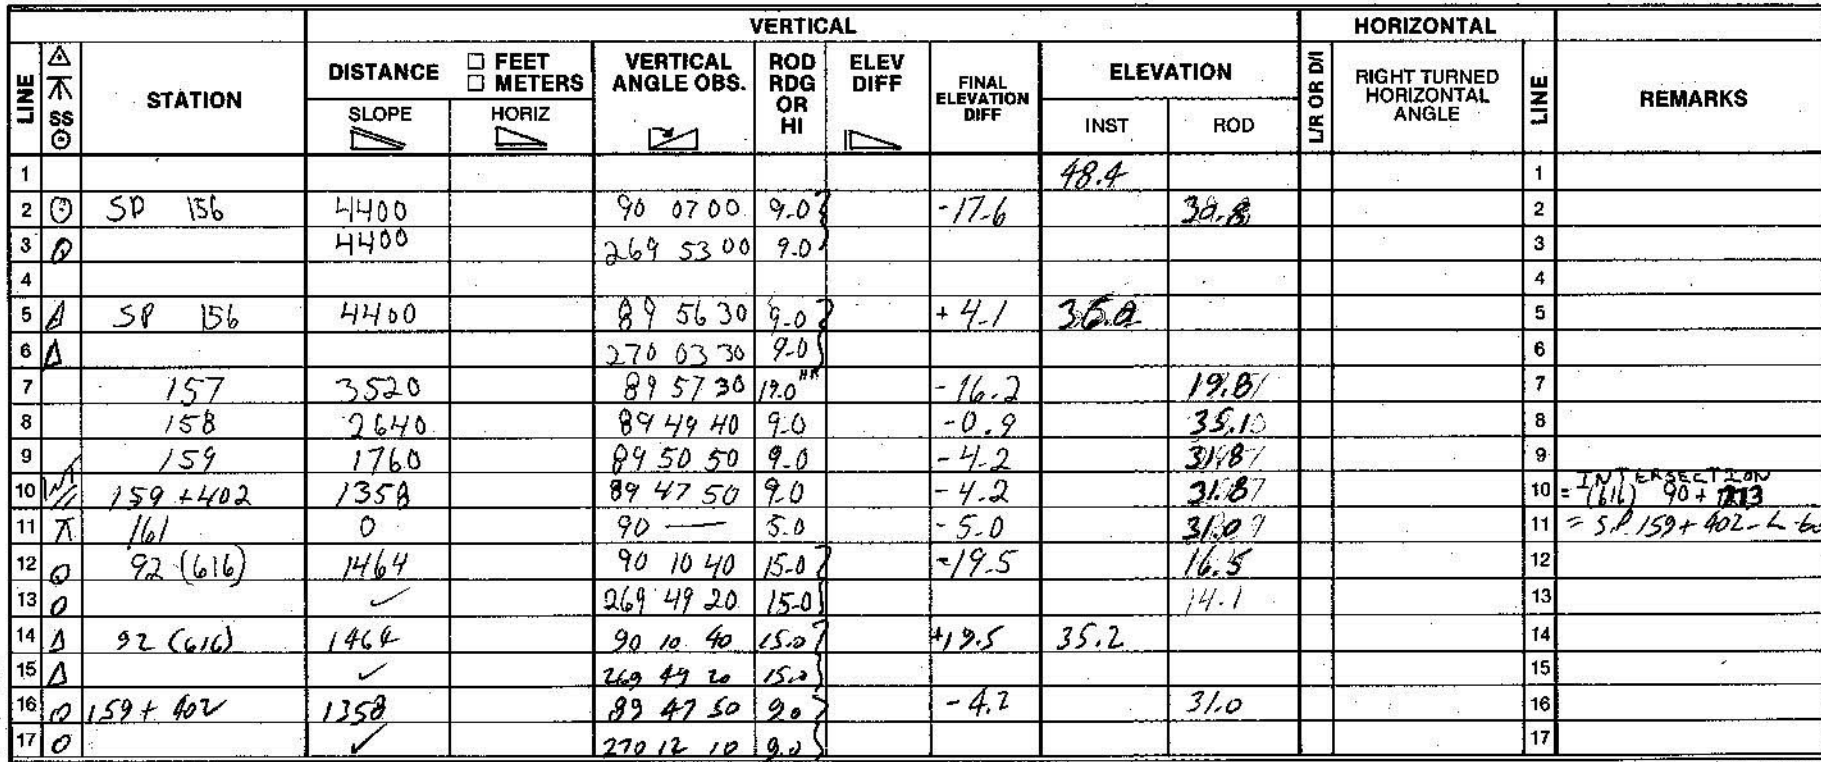 VERTICAL HORIZONTAL
LINE SS STATION DISTANCE □ FEET □ METERS SLOPE HORIZ VERTICAL ANGLE OBS. ROD RDG OR HI ELEV DIFF FINAL ELEVATION DIFF ELEVATION INST ROD L/R OR D/I RIGHT TURNED HORIZONTAL ANGLE LINE REMARKS
1 48.4 1
2 SP 156 4400 90 07 00 9.0 -17.6 30.8 2
3 4400 269 53 00 9.0 3
4 4
5 SP 156 4400 89 56 30 9.0 +4.1 5
6 270 03 30 9.0 6
7 157 3520 89 57 30 19.0 -16.2 19.8 7
8 158 2640 89 49 40 9.0 -0.9 35.1 8
9 159 1760 89 50 50 9.0 -4.2 31.8 9
10 159+402 1358 89 47 50 9.0 -4.2 31.8 10 = INTERSECTION (616) 90+
11 161 0 90 — 5.0 -5.0 31.0 11 = S.P. 159+402-L-60
12 92 (616) 1464 90 10 40 15.0 -19.5 16.5 12
13 ✓ 269 49 20 15.0 14.1 13
14 92 (616) 1464 90 10 40 15.0 +19.5 35.2 14
15 ✓ 269 49 20 15.0 15
16 159+402 1358 89 47 50 9.0 -4.2 31.0 16
17 ✓ 270 12 10 9.0 17